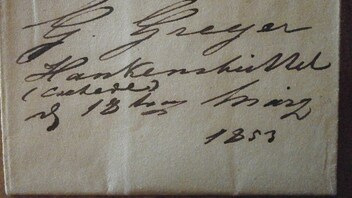 G. Greyer
Hankensbüttel
18ten März
1853